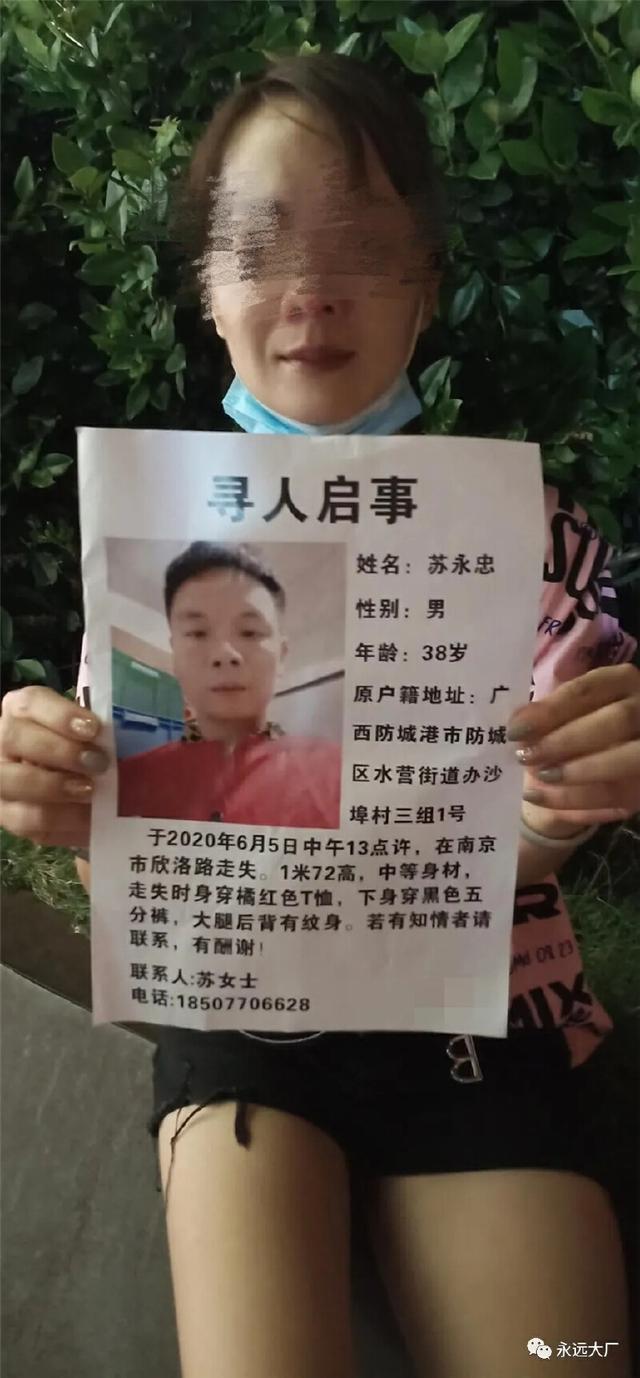 寻人启事
姓名：苏永忠
性别：男
年龄：38岁
原户籍地址：广
西防城港市防城
区水营街道办沙
埠村三组1号
于2020年6月5日中午13点许，在南京
市欣洛路走失。1米72高，中等身材，
走失时身穿橘红色T恤，下身穿黑色五
分裤，大腿后背有纹身。若有知情者请
联系，有酬谢！
联系人:苏女士
电话:18507706628
09.23
MIX
B
永远大厂